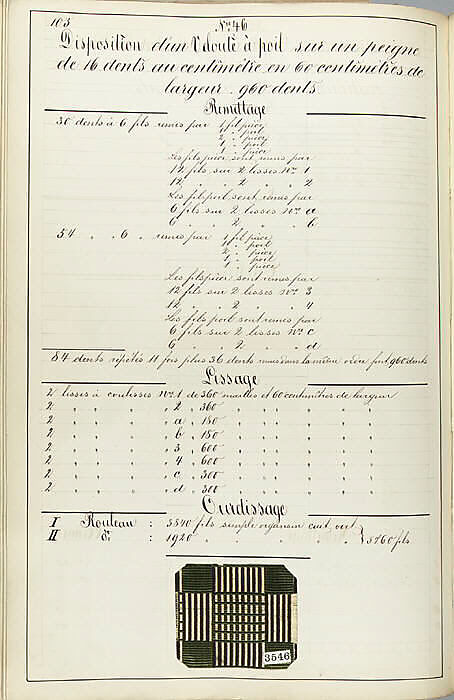 103
N° 46
Disposition d'un Velouté à poil sur un peigne
de 16 dents au centimètre en 60 centimètres de
largeur. 960 dents.
Remettage
30 dents à 6 fils remis par 1 fil pièce
1 " poil
2 " pièce
1 " poil
1 " pièce
Les fils pièce sont remis par
12 fils sur 2 lisses N° 1
12 " " 2 " " 2
Les fils poil sont remis par
6 fils sur 2 lisses N° a
6 " " 2 " " b
54 " " 6 " remis par 1 fil pièce
1 " poil
2 " pièce
1 " poil
1 " pièce
Les fils pièce sont remis par
12 fils sur 2 lisses N° 3
12 " " 2 " " 4
Les fils poil sont remis par
6 fils sur 2 lisses N° c
6 " " 2 " " d
84 dents répétés 11 fois plus 36 dents dans le même font 960 dents
Lissage
2 lisses à coulisses N° 1 de 360 mailles et 60 centimètres de largeur
2 " " " " 2 " 360 " " " " "
2 " " " " a " 180 " " " " "
2 " " " " b " 180 " " " " "
2 " " " " 3 " 600 " " " " "
2 " " " " 4 " 600 " " " " "
2 " " " " c " 300 " " " " "
2 " " " " d " 300 " " " " "
Ourdissage
I Rouleau : 3840 fils simple organsin cuit vert
II d° : 1920 " " " " " } 5760 fils
3546